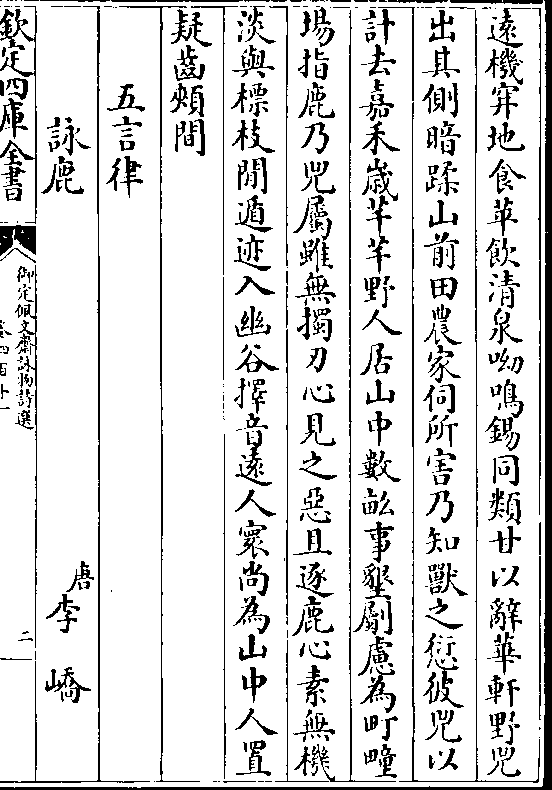 遠機穽地食苹飲清泉呦鳴錫同類甘以辭華軒野兕
出其側暗蹂山前田農家伺所害乃知獸之愆彼兕以
計去嘉禾歲芊芊野人居山中數畝事墾劚慮為町畽
場指鹿乃兕屬雖無擉刃心見之惡且逐鹿心素無機
淡與標枝閒遁迹入幽谷擇音遠人寰尚為山中人置
疑齒頰間
五言律
詠鹿
唐李嶠
欽定四庫全書
御定佩文齋詠物詩選
卷四百廿一
二